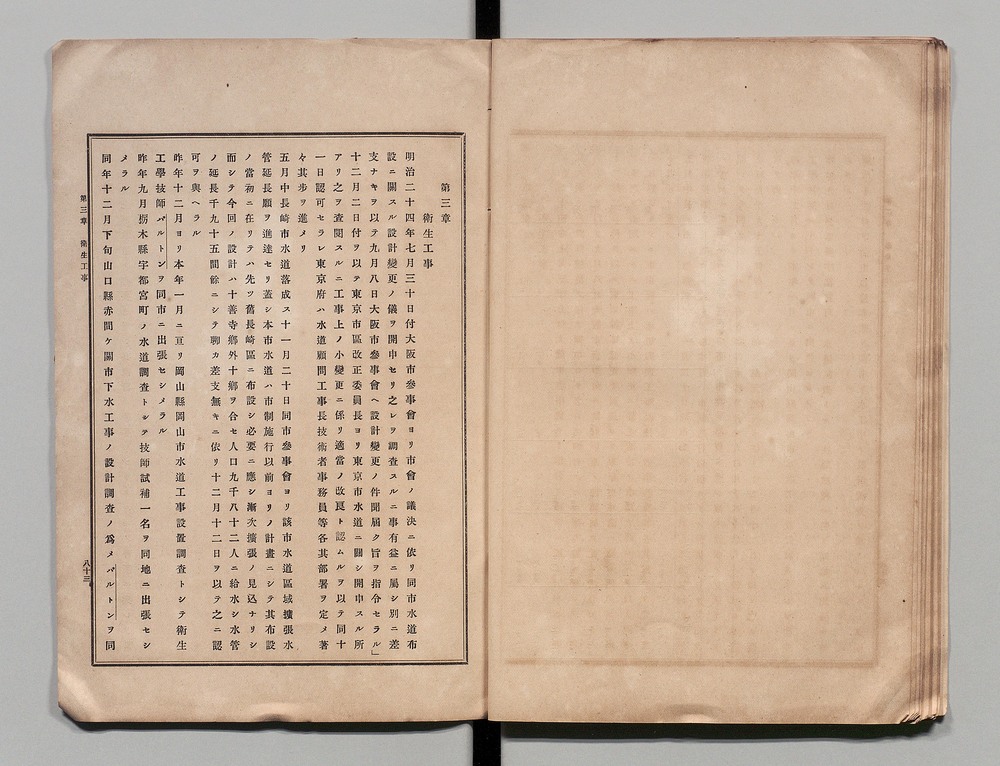 第三章
衛生工事
明治二十四年七月三十日付大阪市參事會ヨリ市會ノ議決ニ依リ同市水道布
設ニ關スル設計變更ノ儀ヲ開申セリ之レヲ調査スルニ事有益ニ屬シ別ニ差
支ナキヲ以テ九月八日大阪市參事會ヘ設計變更ノ件聞屆ク旨ヲ指令セラル」
十二月二日付ヲ以テ東京市區改正委員長ヨリ東京市水道ニ關シ開申スル所
アリ之ヲ査閱スルニ工事上ノ小變更ニ係リ適當ノ改良ト認ムルヲ以テ同十
一日認可セラレ東京府ハ水道顧問工事長技術者事務員等各其部署ヲ定メ著
々其步ヲ進メリ
五月中長崎市水道落成ス十一月二十日同市參事會ヨリ該市水道區域擴張水
管延長願ヲ進達セリ蓋シ本市水道ハ市制施行以前ヨリノ計畫ニシテ其布設
ノ當初ニ在リテハ先ツ舊長崎區ニ布設シ必要ニ應シ漸次擴張ノ見込ナリシ
而シテ今回ノ設計ハ十善寺鄉外十鄉ヲ合セ人口九千八十二人ニ給水シ水管
ノ延長千九十五間餘ニシテ聊カ差支無キニ依リ十二月十二日ヲ以テ之ニ認
可ヲ與ヘラル
昨年十二月ヨリ本年一月ニ亘リ岡山縣岡山市水道工事設置調査トシテ衛生
工學技師バルトンヲ同市ニ出張セシメラル
昨年九月栃木縣宇都宮町ノ水道調査トシテ技師試補一名ヲ同地ニ出張セシ
メラル
同年十二月下旬山口縣赤間ケ關市下水工事ノ設計調査ノ爲メバルトンヲ同
第三章 衛生工事
八十三